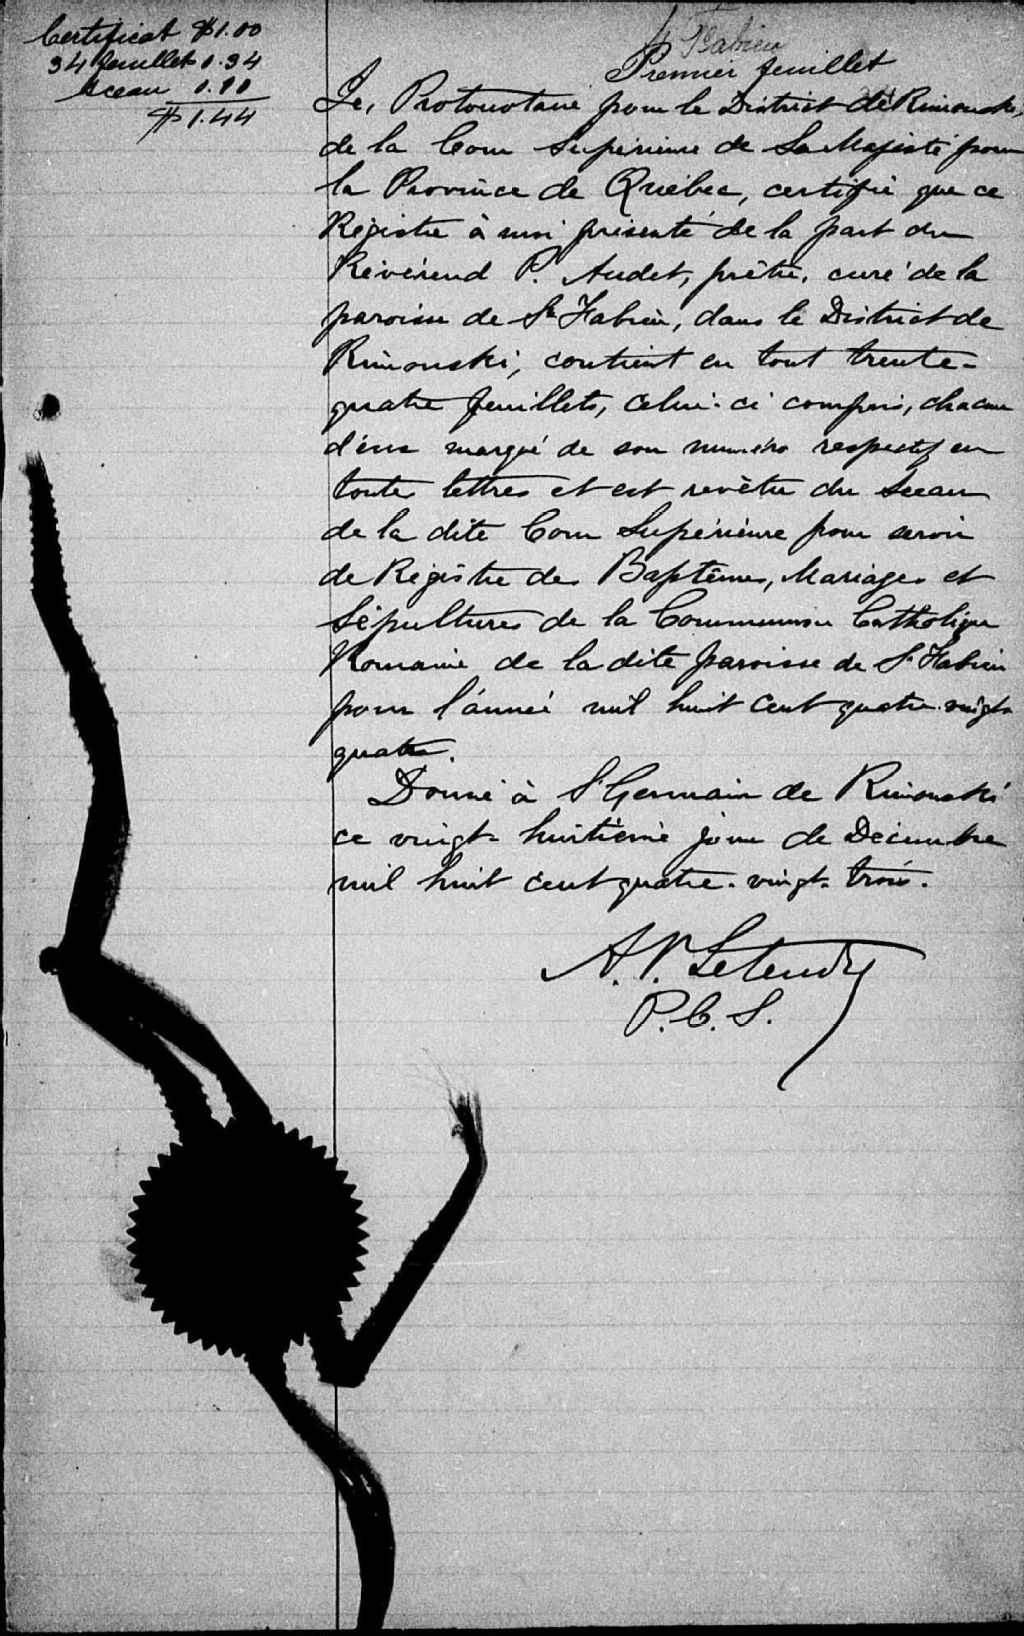 Certificat $1.00
34 feuillets 0.34
sceau 0.10
$1.44
St Fabien
Premier feuillet
Je, Protonotaire pour le District de Rimouski,
de la Cour Supérieure de Sa Majesté pour
la Province de Québec, certifie que ce
Régistre à moi présenté de la part du
Révérend P. Audet, prêtre, curé de la
paroisse de St Fabien, dans le District de
Rimouski, contient en tout trente-
quatre feuillets, celui-ci compris, chacun
d'eux marqué de son numéro respectif en
toutes lettres et est revêtu du Sceau
de la dite Cour Supérieure pour servir
de Régistre des Baptêmes, Mariages et
Sépultures de la Communion Catholique
Romaine de la dite paroisse de St Fabien
pour l'année mil huit cent quatre-vingt-
quatre.
Donné à St Germain de Rimouski
ce vingt-huitième jour de Décembre
mil huit cent quatre-vingt-trois.
A. P. Letendre
P. C. S.